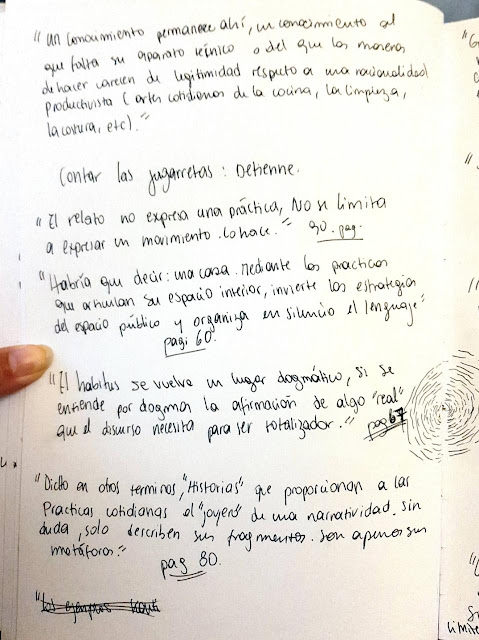 "un conocimiento permanece ahí, un conocimiento al
que falta su aparato técnico o del que las maneras
de hacer carecen de legitimidad respecto a una racionalidad
productivista (artes cotidianas de la cocina, la limpieza,
la costura, etc)."
Contar las jugarretas: Detienne.
"El relato no expresa una práctica, No se limita
a expresar un movimiento. Lo hace." 90. pag.
"Habría que decir: una casa. Mediante las practicas
que articulan su espacio interior, invierte las estrategias
del espacio público y organiza en silencio el lenguaje"
pagi 60.
"El habitus se vuelve un lugar dogmático, si se
entiende por dogma la afirmación de algo "real"
que el discurso necesita para ser totalizador." pag 67
"Dicho en otros terminos, "Historias" que proporcionan a las
Practicas cotidianas el "joyero" de una narratividad. Sin
duda, solo describen sus fragmentos. Son apenas sus
metáforas."
pag 80.
"Los ejemplos